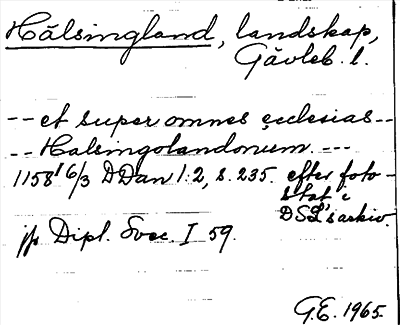 Hälsingland, landskap,
Gävleb. l.
-- et super omnes ęcclesias --
-- Halsingolandorum. --
1158 16/3 DDan 1:2, s. 235. efter foto-
stat i
DSL's arkiv.
jfr Dipl. Svec. I 59.
G.E. 1965.